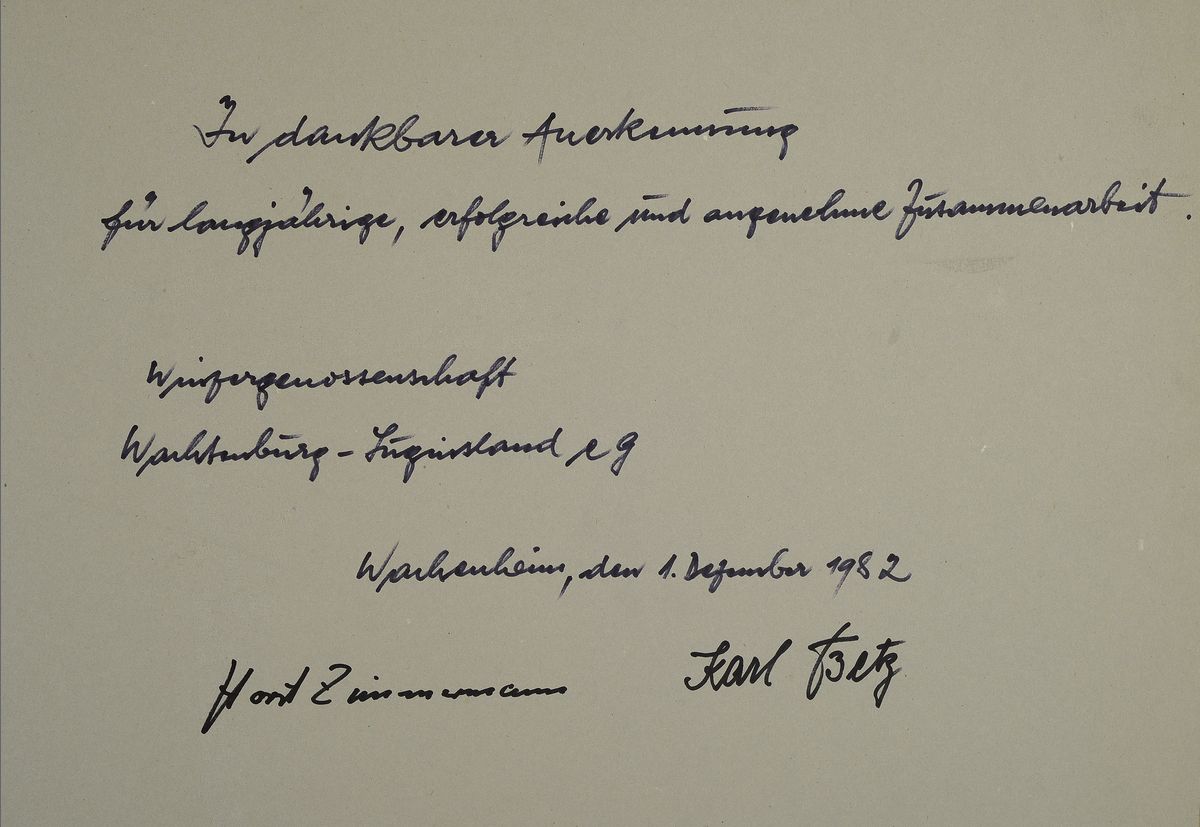 In dankbarer Anerkennung
für langjährige, erfolgreiche und angenehme Zusammenarbeit.
Winzergenossenschaft
Wachtenburg - Luginsland eG
Wachenheim, den 1. Dezember 1982
Horst Zimmermann
Karl Betz